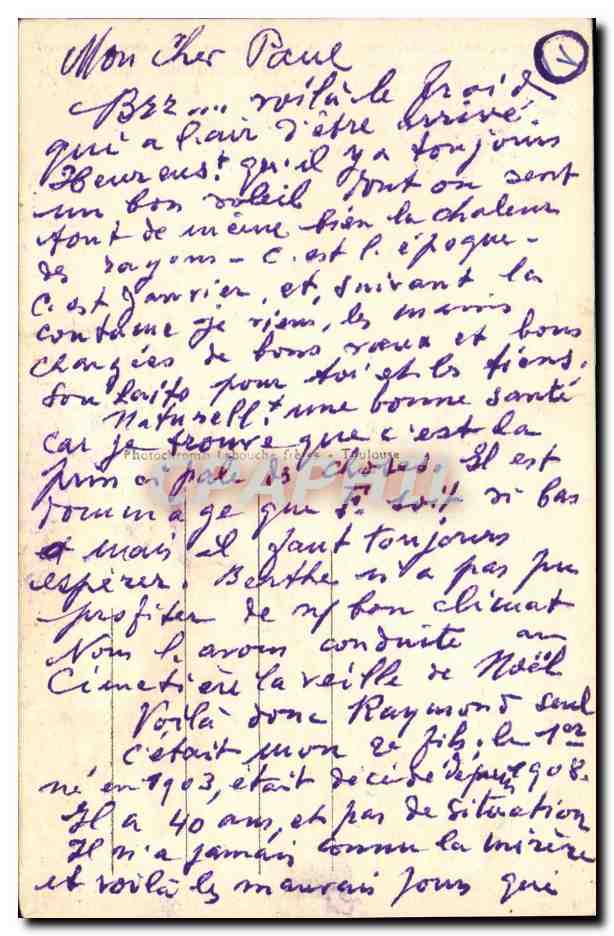 Mon cher Paul
Brr.... voilà le froid
qui a l'air d'être arrivé.
Heureust qu'il y a toujours
un bon soleil dont on sent
tout de même bien la chaleur
des rayons - c'est l'époque -
c'est Janvier, et, suivant la
coutume je viens, les mains
chargées de bons vœux et bons
souhaits pour toi et les tiens.
Naturellt une bonne santé
car je trouve que c'est la
Photochromie Labouche frères - Toulouse
principale des choses. Il est
CPAPHIL
dommage que soit si bas
mais il faut toujours
espérer. Berthe n'a pas pu
profiter de n/ bon climat
Nous l'avons conduite au
Cimetière la veille de Noël
Voilà donc Raymond seul
c'était mon 2e fils. le 1er
né en 1903, était décédé depuis 1908.
Il a 40 ans, et pas de situation
Il n'a jamais connu la misère
et voilà les mauvais jours qui